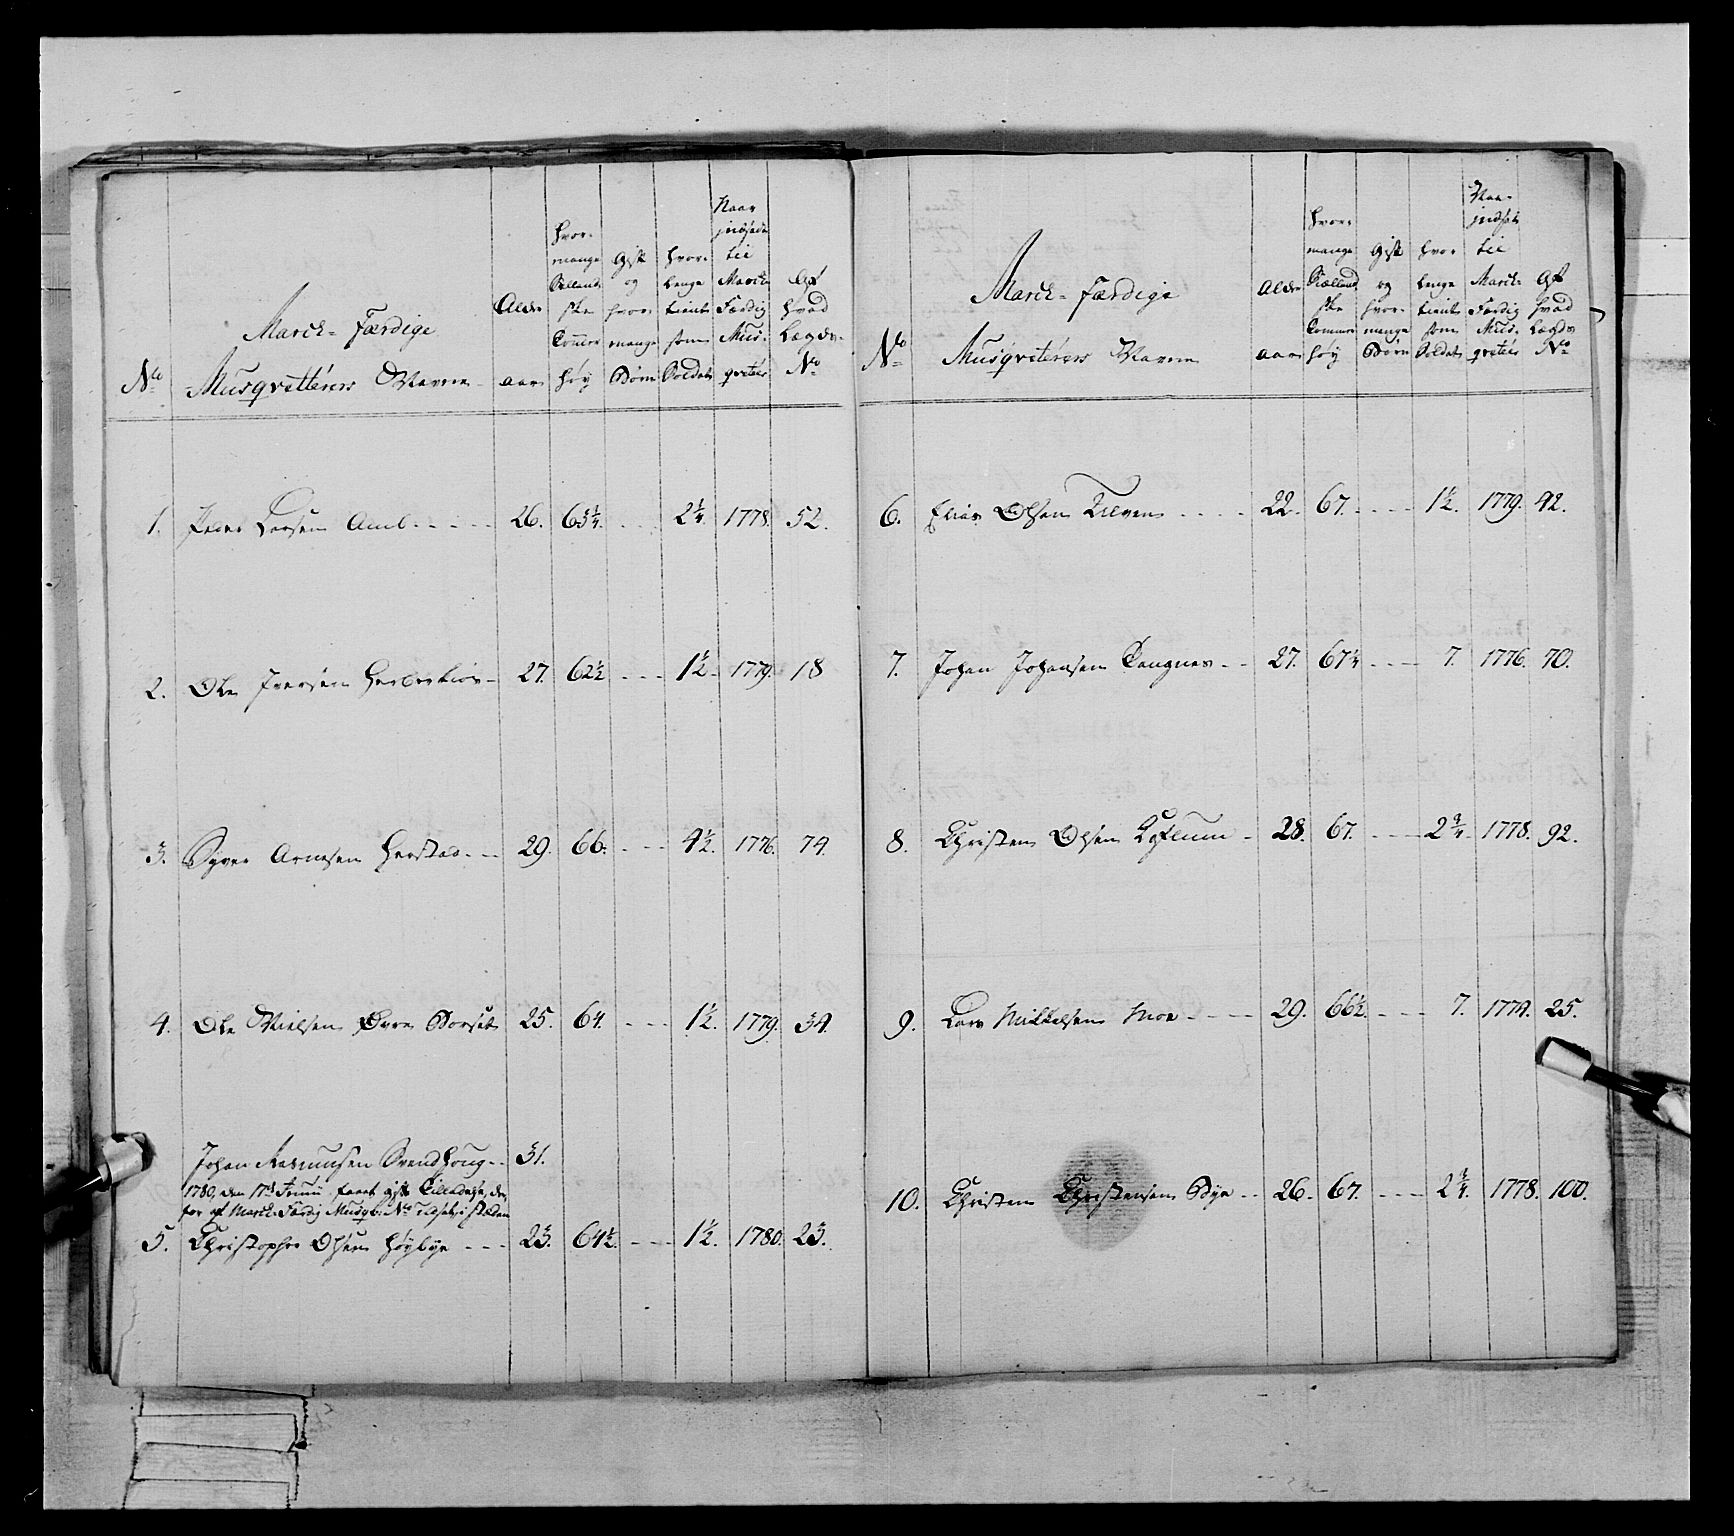 No
March-Færdige
Musqvetterers Navne
Alder
aar
hvor-
mange
Siellands
ske
Tommer
høy
Gift
og
hvor
mange
Børn
hvor-
længe
tient
som
Soldat
Naar
indsadt
til
March-
Færdig
Mus-
qveteer
Af
hvad
Lægds-
No
1. Peder Larsen Aml - - - - 26. 65¼. - - 2¼. 1778. 52.
2. Ole Iversen - 27. 62½ - - - 1½. 1779. 18
3. Syver Arnesen Herstad - - 29. 66. - - - 4½. 1776. 74.
4. Ole Nielsen Øvre Borset 25. 64. - - - 1½. 1779. 34.
Johan Rasmusen Svendhoug - - 31.
1780, den 17d Junii faaet gift Tilladelse, der
for af March-Færdig Musqt: No
5. Christopher Olsen Høybye - - - 23. 64½. - - - 1½. 1780. 23.
No
March-færdige
Musqveterers Navne
Alder
aar
hvor-
mange
Siellands
ske
Tommer
høy
Gift
og
hvor-
mange
Børn
hvor
længe
tient
som
Soldat
Naar
indsat
til
March-
Færdig
Mus-
qveteer
Af
hvad
Lægds
No
6. Elias Olsen - - - - 22. 67. - - - - 1½. 1779. 42.
7. Johan Johansen Tangnes - - 27. 67¼ - - - - 7. 1776. 70.
8. Christen Olsen - 28. 67. - - - - 2¾. 1778. 92.
9. Lars Mikkelsen Moe - - - - 29. 66½. - - - 7. 1774. 25.
10. Christen Christensen Bye - - 26. 67. - - - - 2¾. 1778. 100.